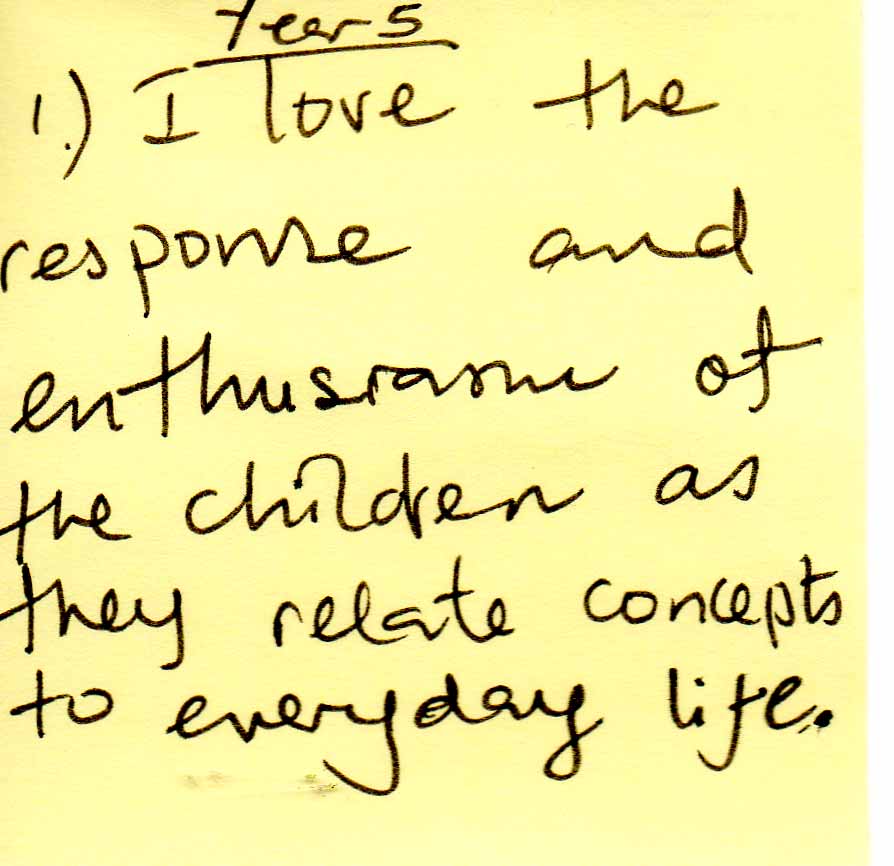 Year 5
1.) I love the
response and
enthusiasm of
the children as
they relate concepts
to everyday life.